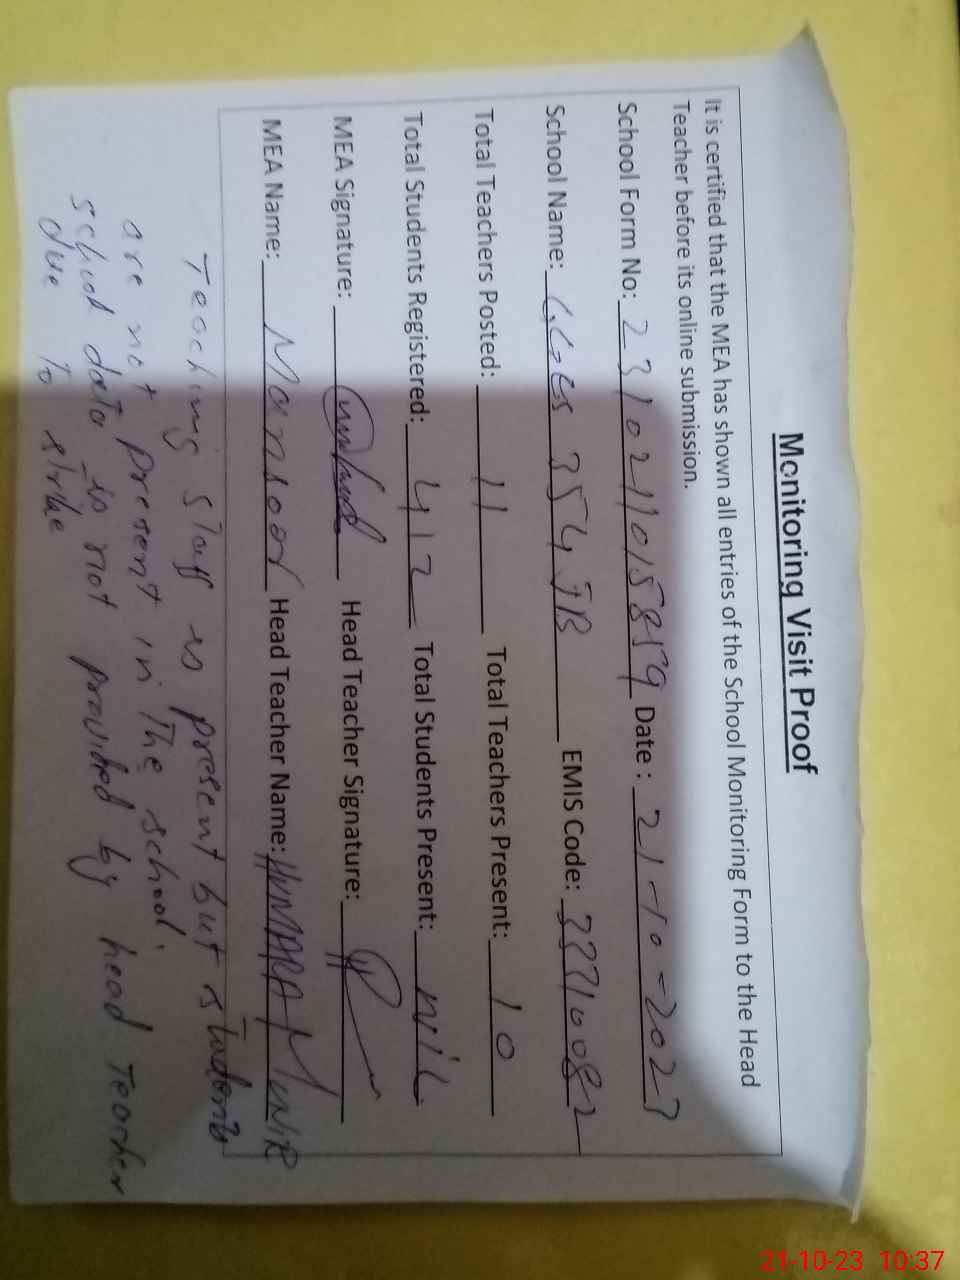 Monitoring Visit Proof
It is certified that the MEA has shown all entries of the School Monitoring Form to the Head
Teacher before its online submission.
School Form No: 231021101585 19 Date : 21-10-2023
School Name: GGES 354 JB EMIS Code: 33710082
Total Teachers Posted: 11 Total Teachers Present: 10
Total Students Registered: 412 Total Students Present: NIL
MEA Signature: Head Teacher Signature:
MEA Name: Mansoor Head Teacher Name: HUMARA MUNIR
Teaching staff is present but students
are not present in The school.
school data is not provided by head Teacher
due to strike
21-10-23 10:37